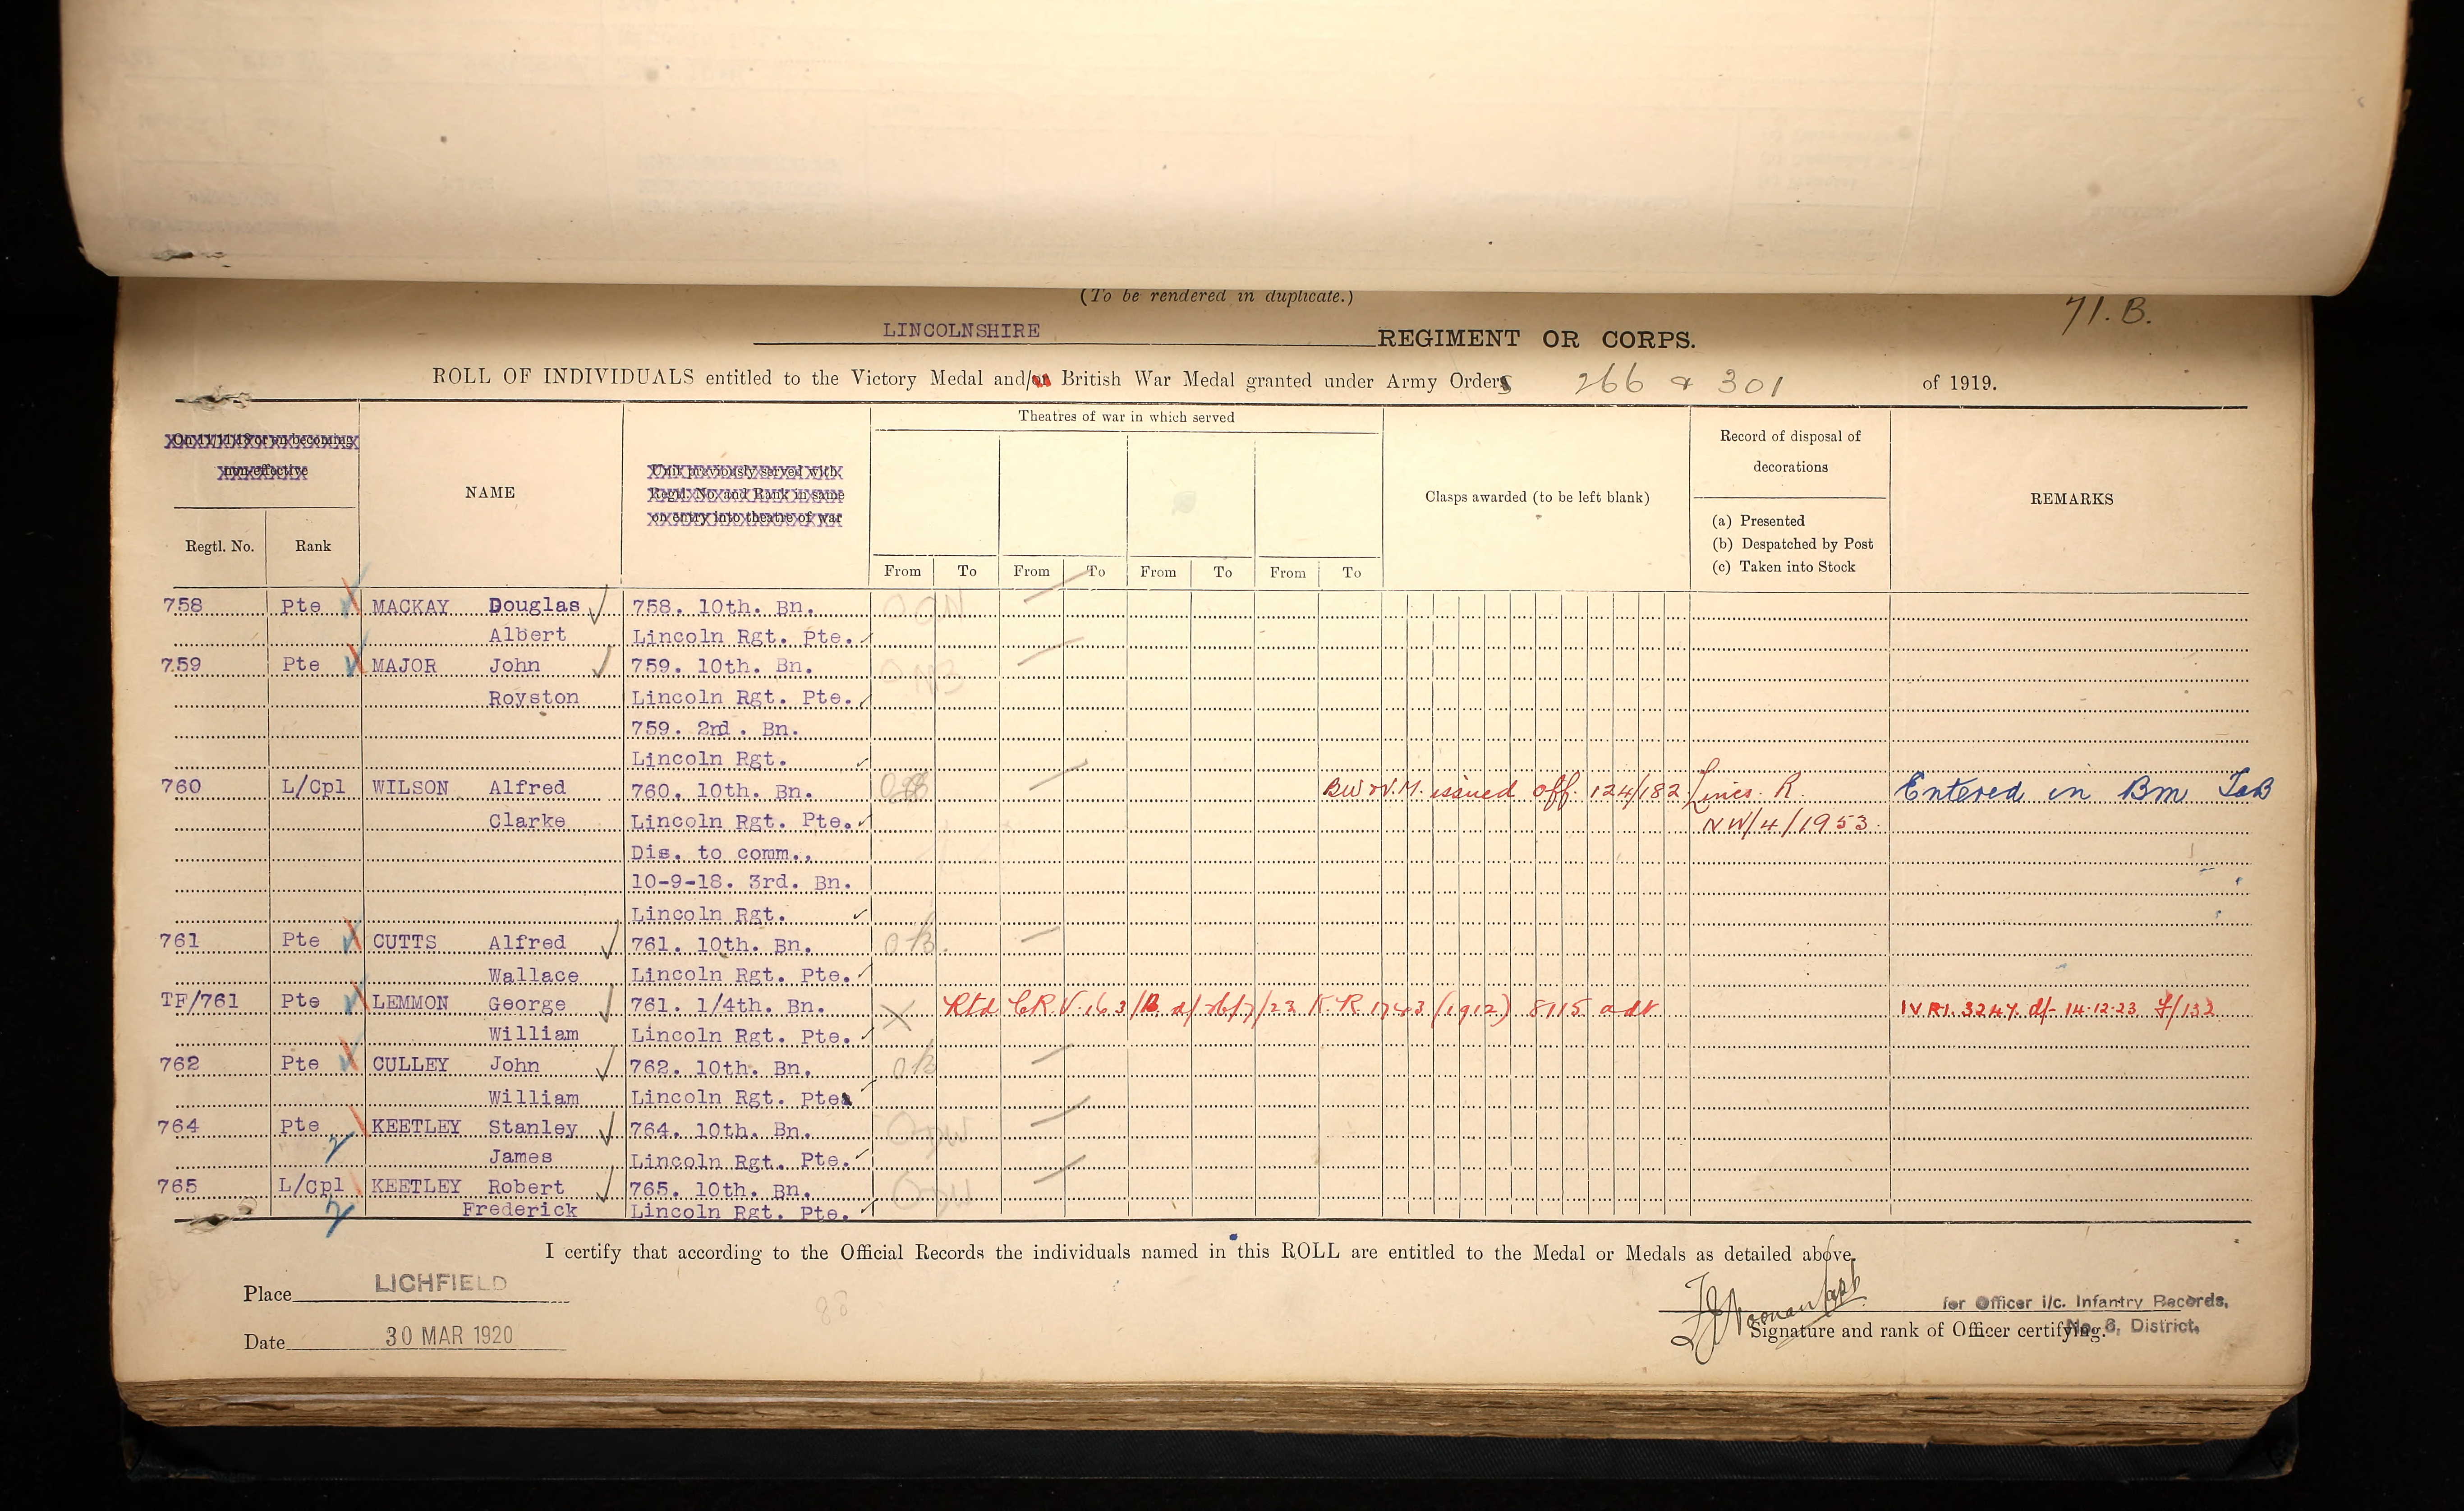 (To be rendered in duplicate.)
71. B.
LINCOLNSHIRE REGIMENT OR CORPS.
ROLL OF INDIVIDUALS entitled to the Victory Medal and/or British War Medal granted under Army Orders 266 & 301 of 1919.
On 11/11/18 or on becoming non-effective
Regtl. No. Rank
NAME
Unit previously served with. Regtl. No. and Rank in same on entry into theatre of war
Theatres of war in which served
From To From To From To From To
Clasps awarded (to be left blank)
Record of disposal of decorations
(a) Presented
(b) Despatched by Post
(c) Taken into Stock
REMARKS
758 Pte MACKAY Douglas 758. 10th. Bn.
Albert Lincoln Rgt. Pte.
759 Pte MAJOR John 759. 10th. Bn.
Royston Lincoln Rgt. Pte.
759. 2nd. Bn.
Lincoln Rgt.
760 L/Cpl WILSON Alfred 760. 10th. Bn. BW & V.M. issued off. 124/182 Lincs. R. Entered in Bm
Clarke Lincoln Rgt. Pte. NW/4/1953.
Dis. to comm.,
10-9-18. 3rd. Bn.
Lincoln Rgt.
761 Pte CUTTS Alfred 761. 10th. Bn.
Wallace Lincoln Rgt. Pte.
TF/761 Pte LEMMON George 761. 1/4th. Bn. X Rtd K R 1743 (1912) 8115 adt IVRI. 3247. d/- 14-12-23
William Lincoln Rgt. Pte.
762 Pte CULLEY John 762. 10th. Bn.
William Lincoln Rgt. Pte.
764 Pte KEETLEY Stanley 764. 10th. Bn.
James Lincoln Rgt. Pte.
765 L/Cpl KEETLEY Robert 765. 10th. Bn.
Frederick Lincoln Rgt. Pte.
I certify that according to the Official Records the individuals named in this ROLL are entitled to the Medal or Medals as detailed above.
Place LICHFIELD
Date 30 MAR 1920
for Officer i/c. Infantry Records,
No. 6, District.
Signature and rank of Officer certifying.